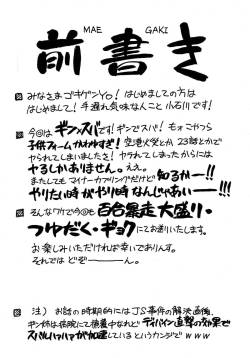 MAE GAKI
前書き
みなさまゴキゲンYo！はじめましての方は
はじめまして！手遅れ気味なんこと 小石川です！
今回はギンスバです！ギンでスバ！もォこやつら
子供フォームかわゆすぎ！空港火災とか 23話とかで
やられてしまいましたさ！ヤラれてしまったからには
やるしかありません。ええ。
またしてもマイナーカップリングだけど 知るかー!!
やりたい時がやり時なんじゃあいー!!!
そんなワケで今回も 百合暴走大盛り・
つゆだく・ギョク にてお送りいたします。
お楽しみいただければ幸いでありんす。
それではどぞー――ん。
注） お話の時期的にはJS事件の解決直後、
ギン姉は病院にて療養中なれど ディバイン直撃の効果で
スバルハァハァが加速 しているというカンジでｗｗｗ